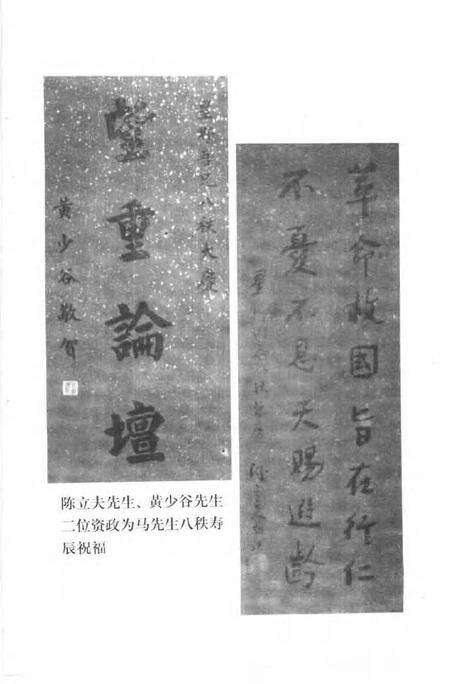 星野吾兄八秩大慶
望重論壇
黃少谷敬賀
革命救國旨在行仁
不憂不 天賜遐齡
陈立夫先生、黄少谷先生
二位资政为马先生八秩寿
辰祝福